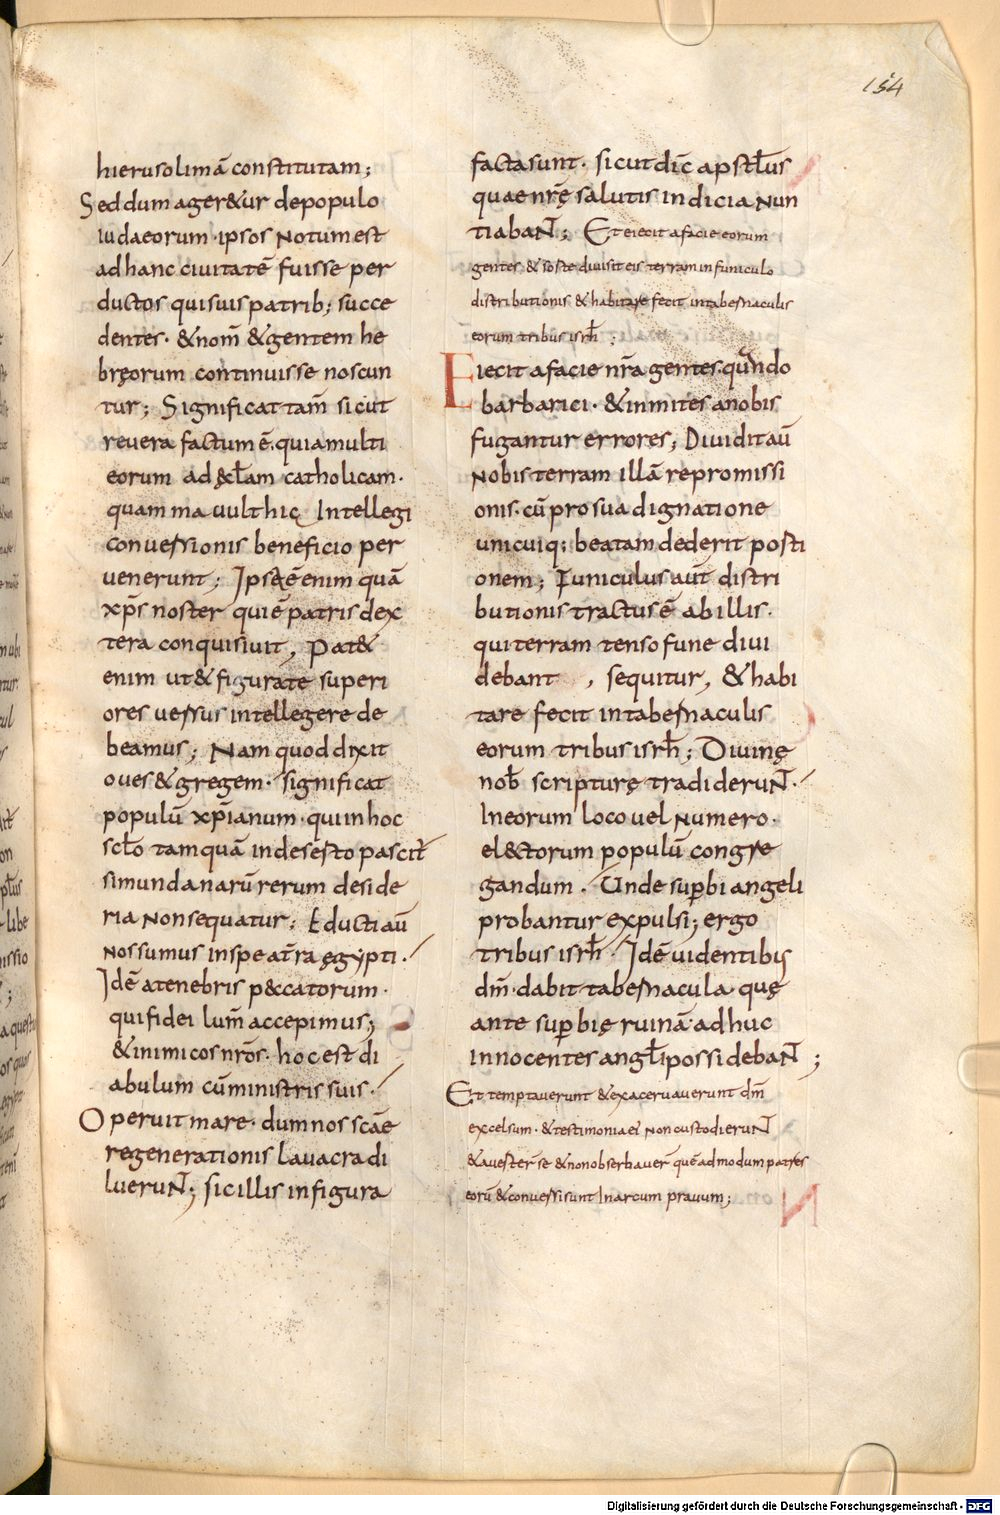 154
hierusolimā constitutam;
Sed dum ager&ur depopulo
iudaeorum·ipsos Notum est
ad hanc ciuitatē fuisse per
ductos quisuis patrib; succe
dentes· &nom̄ &gentem he
bręorum continuisse noscun
tur; Significat tam̄ sicut
reuera factum ē·quia multi
eorum ad &cl̄am catholicam·
quam ma uult hic Intellegi
conuersionis beneficio per
uenerunt; Ipsaē enim quā
xp̄s noster qui ē patris dex
tera conquisiuit, Pat&
enim ut & figurate superi
ores uersus intellegere de
beamus; Nam quod dixit
oues & gregem· significat
populū xp̄ianum·qui in hoc
scl̄o tamquā in deserto pascit̄
si mundanarū rerum deside
ria Non sequatur; Educti aū
Nos sumus in spe a tr̄a ęgypti·
Idē a tenebris p&ccatorum·
qui fidei lum̄ accepimus;
& inimicos nr̄os· hoc est di
abulum cū ministris suis·
Operuit mare· dum nos scāe
regenerationis lauacra di
luerun̄; sic illis in figura
facta sunt· sicut dic̄ apstl̄us
quae nr̄ę salutis indicia Nun
tiaban̄; Et eiecit a facie eorum
gentes· & sorte diuisit eis terram in funiculo
distributionis & habitare fecit in tabernaculis
eorum tribus isrl̄;
Eiecit a facie nr̄a gentes·quando
barbarici· & inmites a nobis
fugantur errores; Diuidit aū
Nobis terram illā repromissi
onis·cū pro sua dignatione
unicuiq; beatam dederit porti
onem; Funiculus aut̄ distri
butionis tractus ē ab illis·
qui terram tenso fune diui
debant, sequitur, & habi
tare fecit in tabernaculis
eorum tribus isrl̄; Diuinę
nob̄ scripturę tradiderun̄·
In eorum loco uel Numero·
el&ctorum populū congre
gandum· Unde sup̄bi angeli
probantur expulsi; ergo
tribus isrl̄· Idē uidentibus
dm̄·dabit tabernacula·quę
ante sup̄bię ruinā·adhuc
innocentes angl̄i possideban̄;
Et temptauerunt & exaceruauerunt dm̄
excelsum·& testimonia ei Non custodierun̄
& auerter̄ se & non obserbauer̄ quēadmodum patres
eorū & conuersi sunt In arcum prauum;
Digitalisierung gefördert durch die Deutsche Forschungsgemeinschaft - DFG